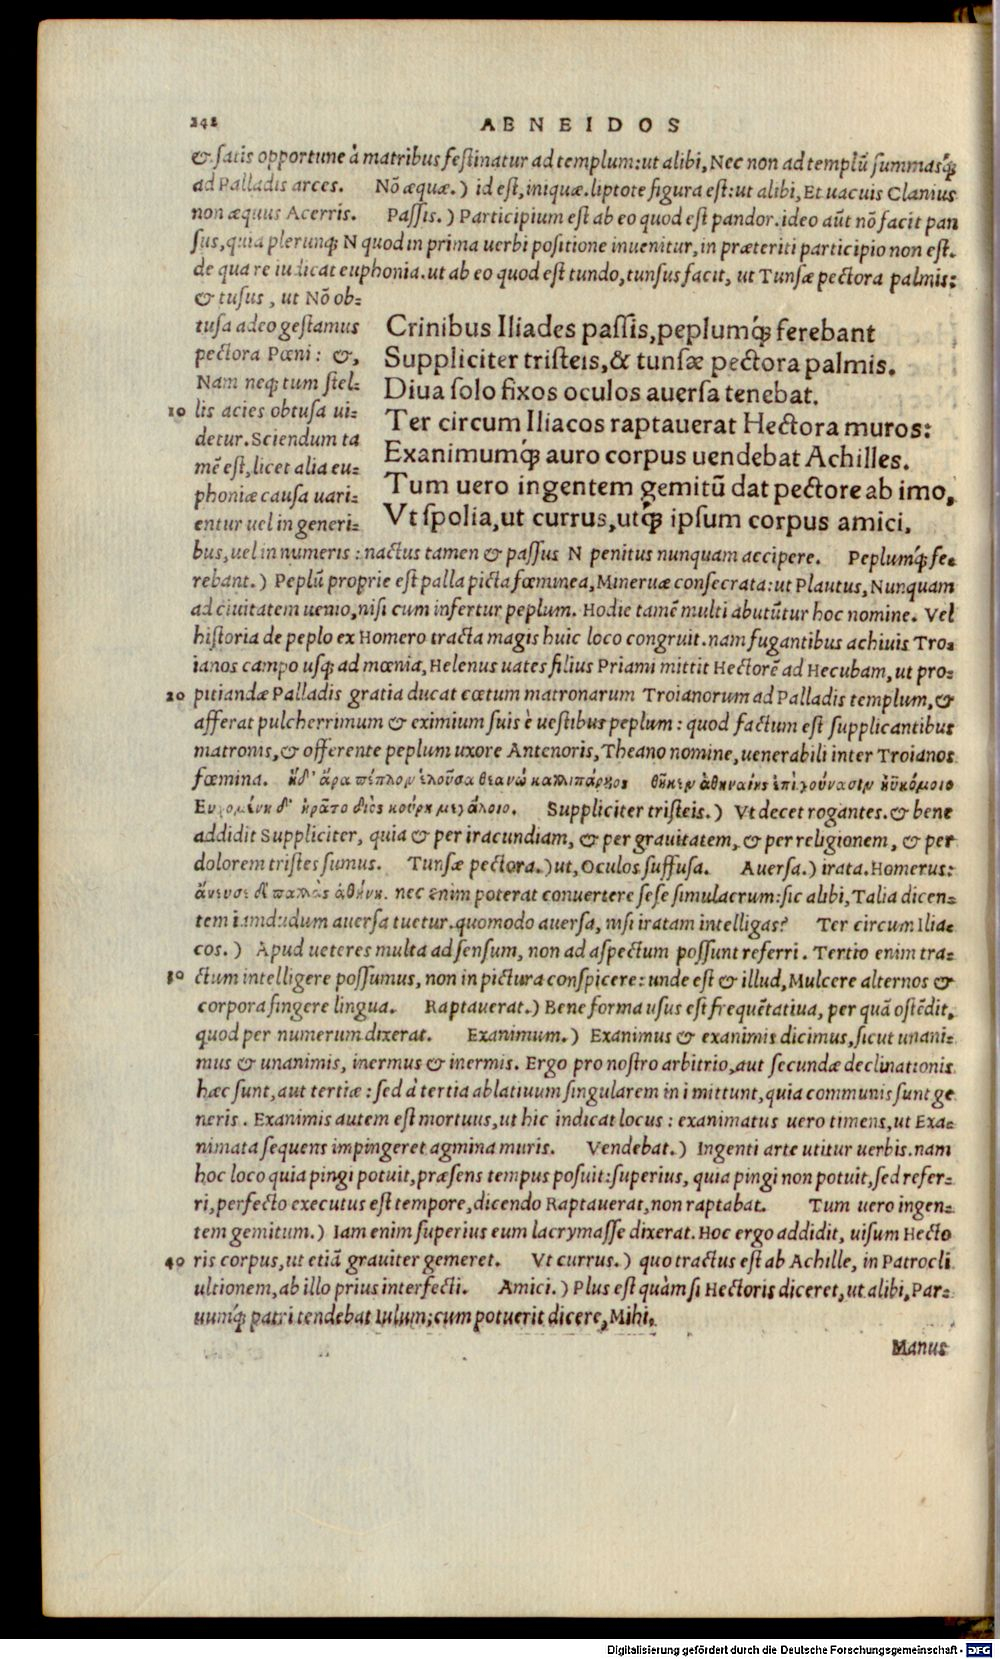 242 AENEIDOS
& satis opportune à matribus festinatur ad templum: ut alibi, Nec non ad templũ summasq́;
ad Palladis arces. Nõ æquæ.) id est, iniquæ. liptote figura est: ut alibi, Et uacuis Clanius
non æquus Acerris. Passis.) Participium est ab eo quod est pandor. ideo aũt nõ facit pan
sus, quia plerunq; N quod in prima uerbi positione inuenitur, in præteriti participio non est.
de qua re iudicat euphonia. ut ab eo quod est tundo, tunsus facit, ut Tunsæ pectora palmis:
& tusus, ut Nõ ob-
tusa adeo gestamus
pectora Pœni: &,
Nam neq; tum stel-
10 lis acies obtusa ui-
detur. Sciendum ta
mẽ est, licet alia eu-
phoniæ causa uari-
entur uel in generi-
Crinibus Iliades passis, peplumq́; ferebant
Suppliciter tristeis, & tunsæ pectora palmis.
Diua solo fixos oculos auersa tenebat.
Ter circum Iliacos raptauerat Hectora muros:
Exanimumq́; auro corpus uendebat Achilles.
Tum uero ingentem gemitũ dat pectore ab imo,
Vt spolia, ut currus, utq́; ipsum corpus amici,
bus, uel in numeris: nactus tamen & passus N penitus nunquam accipere. Peplumq́; fe-
rebant.) Peplũ proprie est palla picta fœminea, Mineruæ consecrata: ut Plautus, Nunquam
ad ciuitatem uenio, nisi cum infertur peplum. Hodie tamẽ multi abutũtur hoc nomine. Vel
historia de peplo ex Homero tracta magis huic loco congruit. nam fugantibus achiuis Tro-
ianos campo usq; ad mœnia, Helenus uates filius Priami mittit Hectorẽ ad Hecubam, ut pro-
20 pitiandæ Palladis gratia ducat cœtum matronarum Troianorum ad Palladis templum, &
afferat pulcherrimum & eximium suis è uestibus peplum: quod factum est supplicantibus
matronis, & offerente peplum uxore Antenoris, Theano nomine, uenerabili inter Troianos
fœmina. ἡδ' ἄρα πέπλον ἑλοῦσα θεανὼ καλλιπάρῃος θῆκεν ἀθηναίης ἐπὶ γούνασιν ἠϋκόμοιο
Εὐχομένη δ' ἠρᾶτο διὸς κούρῃ μεγάλοιο. Suppliciter tristeis.) Vt decet rogantes. & bene
addidit Suppliciter, quia & per iracundiam, & per grauitatem, & per religionem, & per
dolorem tristes sumus. Tunsæ pectora.) ut, Oculos suffusa. Auersa.) irata. Homerus:
ἀνένευε δὲ παλλὰς ἀθήνη. nec enim poterat conuertere sese simulacrum: sic alibi, Talia dicen-
tem iamdudum auersa tuetur. quomodo auersa, nisi iratam intelligas? Ter circum Ilia-
cos.) Apud ueteres multa ad sensum, non ad aspectum possunt referri. Tertio enim tra-
30 ctum intelligere possumus, non in pictura conspicere: unde est & illud, Mulcere alternos &
corpora fingere lingua. Raptauerat.) Bene forma usus est frequẽtatiua, per quã ostẽdit,
quod per numerum dixerat. Exanimum.) Exanimus & exanimis dicimus, sicut unani-
mus & unanimis, inermus & inermis. Ergo pro nostro arbitrio, aut secundæ declinationis
hæc sunt, aut tertiæ: sed à tertia ablatiuum singularem in i mittunt, quia communis sunt ge
neris. Exanimis autem est mortuus, ut hic indicat locus: exanimatus uero timens, ut Exa-
nimata sequens impingeret agmina muris. Vendebat.) Ingenti arte utitur uerbis. nam
hoc loco quia pingi potuit, præsens tempus posuit: superius, quia pingi non potuit, sed refer-
ri, perfecto executus est tempore, dicendo Raptauerat, non raptabat. Tum uero ingen-
tem gemitum.) Iam enim superius eum lacrymasse dixerat. Hoc ergo addidit, uisum Hecto
40 ris corpus, ut etiã grauiter gemeret. Vt currus.) quo tractus est ab Achille, in Patrocli
ultionem, ab illo prius interfecti. Amici.) Plus est quàm si Hectoris diceret, ut alibi, Par-
uumq́; patri tendebat Iulum; cum potuerit dicere, Mihi.
Manus
Digitalisierung gefördert durch die Deutsche Forschungsgemeinschaft - DFG